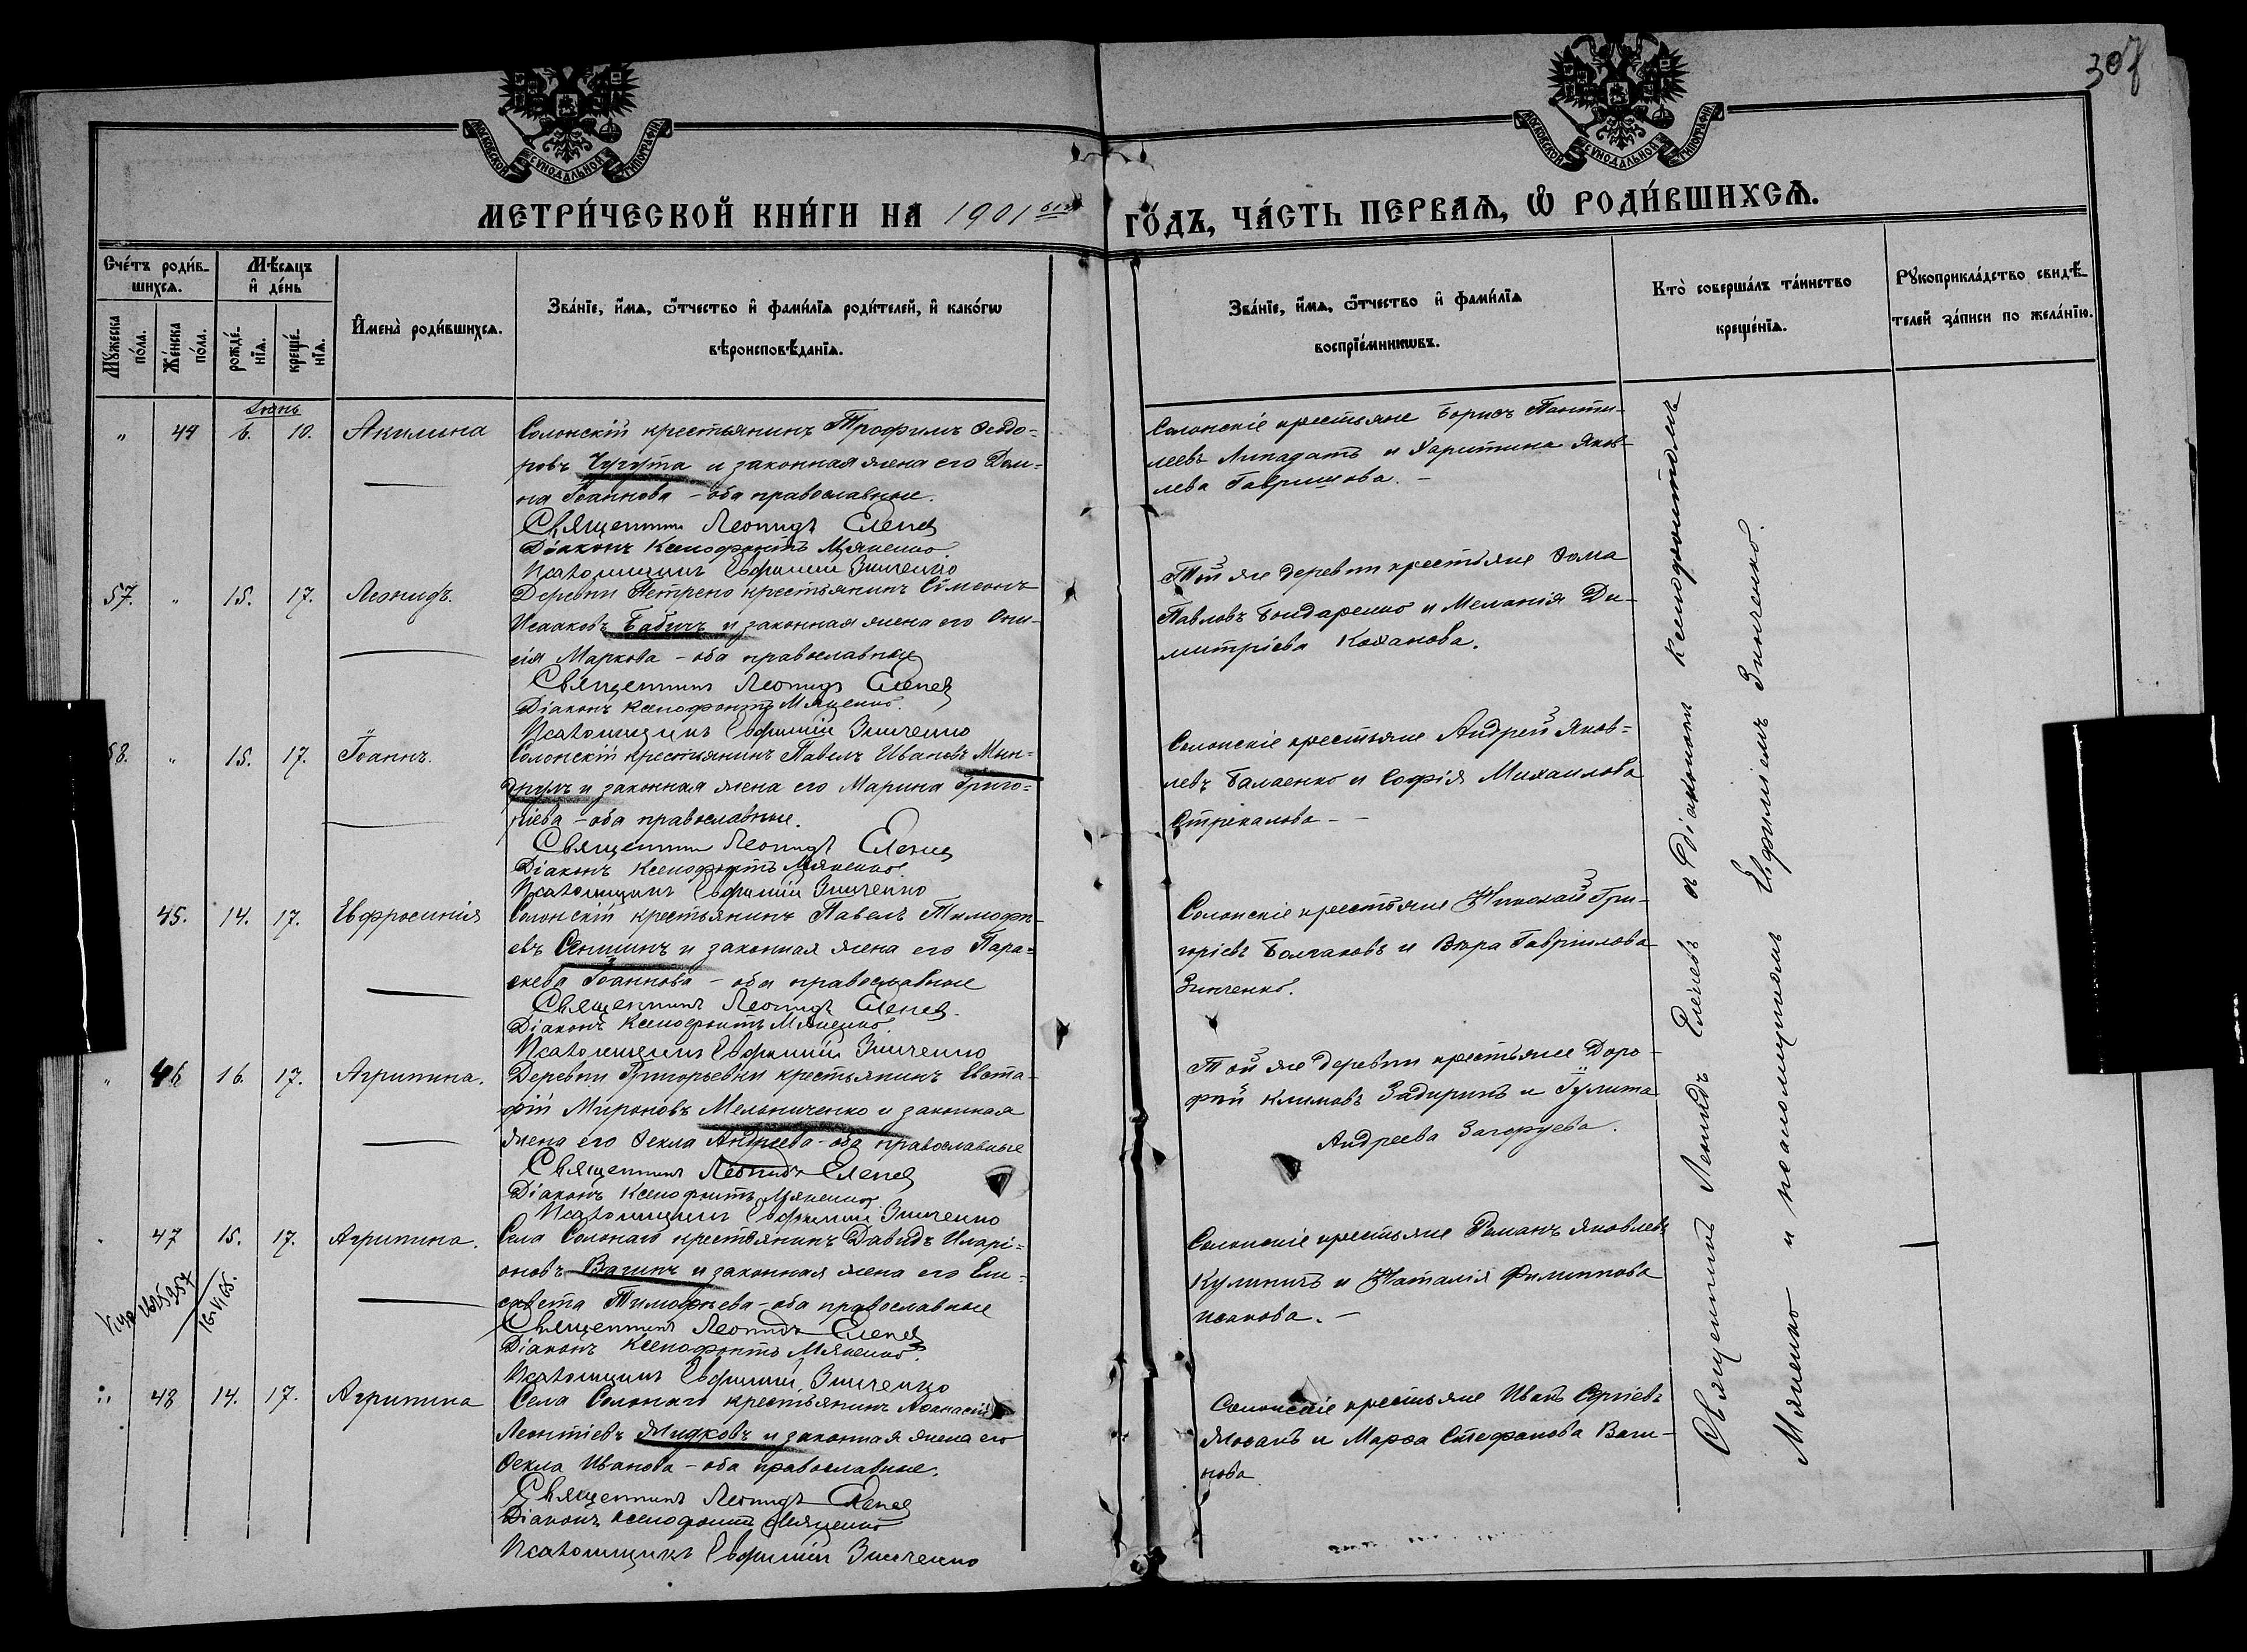 307
МОСКОВСКОЙ СѴНОДАЛЬНОЙ ТИПОГРАФІИ
МОСКОВСКОЙ СѴНОДАЛЬНОЙ ТИПОГРАФІИ
МЕТРИ́ЧЕСКОЙ КНИ́ГИ НА 1901 ГО́ДЪ, ЧА́СТЬ ПЕРВАѦ, Ѡ҆ РОДИ́ВШИХСѦ.
Сче́тъ роди́в-
шихсѧ.
Мꙋ́жеска по́ла.
Же́нска по́ла.
Мѣ́сяцъ
и҆ де́нь
рожде́-
нїѧ.
креще́-
нїѧ.
И҆мена̀ роди́вшихсѧ.
Зва́нїе, и҆́мѧ, ѻ҆́тчество и҆ фами́лїѧ роди́телей, и҆ како́гѡ
вѣроисповѣ́данїѧ.
Зва́нїе, и҆́мѧ, ѻ҆́тчество и҆ фами́лїѧ
воспрїе́мникѡвъ.
Кто̀ соверша́лъ та́инство
креще́нїѧ.
Рꙋкоприкла́дство свидѣ́-
телей за́писи по жела́нїю.
Іюнь
" 44 6. 10. Акилина
Солонскій крестьянинъ Трофимъ Ѳедо=
ровъ Чугута и законная жена его Дом=
на Іоаннова - оба православные.
Священникъ Леонидъ Еленев
Діаконъ Ксенофонтъ Мяненко.
Псаломщикъ Евфимій Зинченко
Солонскіе крестьяне Борисъ Панти-
леевъ Липадатъ и Харитина Яков-
лева Гавришова. -
57. " 15. 17. Леонидъ.
Деревни Петрено крестьянинъ Сѵмеонъ
Исааковъ Бабичъ и законная жена его Они-
сія Маркова - оба православные
Священникъ Леонидъ Еленев
Діаконъ Ксенофонтъ Мяненко.
Псаломщикъ Евфимій Зинченко
Той же деревни крестьяне Ѳома
Павловъ Бондаренко и Меланія Ди-
митріева Каханова.
58. " 15. 17. Іоаннъ.
Солонскій крестьянинъ Павелъ Ивановъ Мын-
друлъ и законная жена его Марина Григо=
ріева - оба православные.
Священникъ Леонидъ Еленев
Діаконъ Ксенофонтъ Мяненко.
Псаломщикъ Евфимій Зинченко
Солонскіе крестьяне Андрей Яков=
левъ Балаенко и Софія Михаилова
Стрекалова - -
45. 14. 17. Евфросинія
Солонскій крестьянинъ Павелъ Тимофе-
евъ Сеншинъ и законная жена его Пара=
скева Іоаннова - оба православные
Священникъ Леонидъ Еленев.
Діаконъ Ксенофонтъ Мяненко.
Псаломщикъ Евфимій Зинченко
Солонскіе крестьяне Николай Гри-
горіевъ Болчаковъ и Вѣра Гавріилова
Зинченко.
" 46 16. 17. Агрипина.
Деревни Григорьевки крестьянинъ Евста-
фій Мироновъ Мельниченко и законная
жена его Ѳекла Андреева - оба православные
Священникъ Леонидъ Еленев
Діаконъ Ксенофонтъ Мяненко
Псаломщикъ Евфимій Зинченко
Той же деревни крестьяне Доро-
фей Климовъ Задиринъ и Іулита
Андреева Загоруева.
47 15. 17. Агрипина.
Села Солонаго крестьянинъ Давидъ Иларі=
оновъ Вагинъ и законная жена его Ели-
савета Тимофеева - оба православные
Священникъ Леонидъ Еленев
Діаконъ Ксенофонтъ Мяненко.
Псаломщикъ Евфимій Зинченко
Солонскіе крестьяне Романъ Яковлевъ
Кулиничъ и Наталія Филиппова
Исакова. -
16.VI.65.
48 14. 17. Агрипина
Села Солонаго крестьянинъ Аѳанасій
Леонтіевъ Жидковъ и законная жена его
Ѳекла Иванова - оба православные.
Священникъ Леонидъ Еленев
Діаконъ Ксенофонтъ Мяненко
Псаломщикъ Евфимій Зинченко
Солонскіе крестьяне Иванъ Сергіевъ
и Марѳа Стефанова Ваги-
нова
Священникъ Леонидъ Еленевъ съ Діакономъ Ксенофонтомъ
Мяненко и псаломщикомъ Евфиміемъ Зинченко.